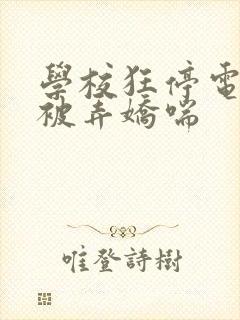 學校狂停電
被弄嬌喘
唯登詩樹